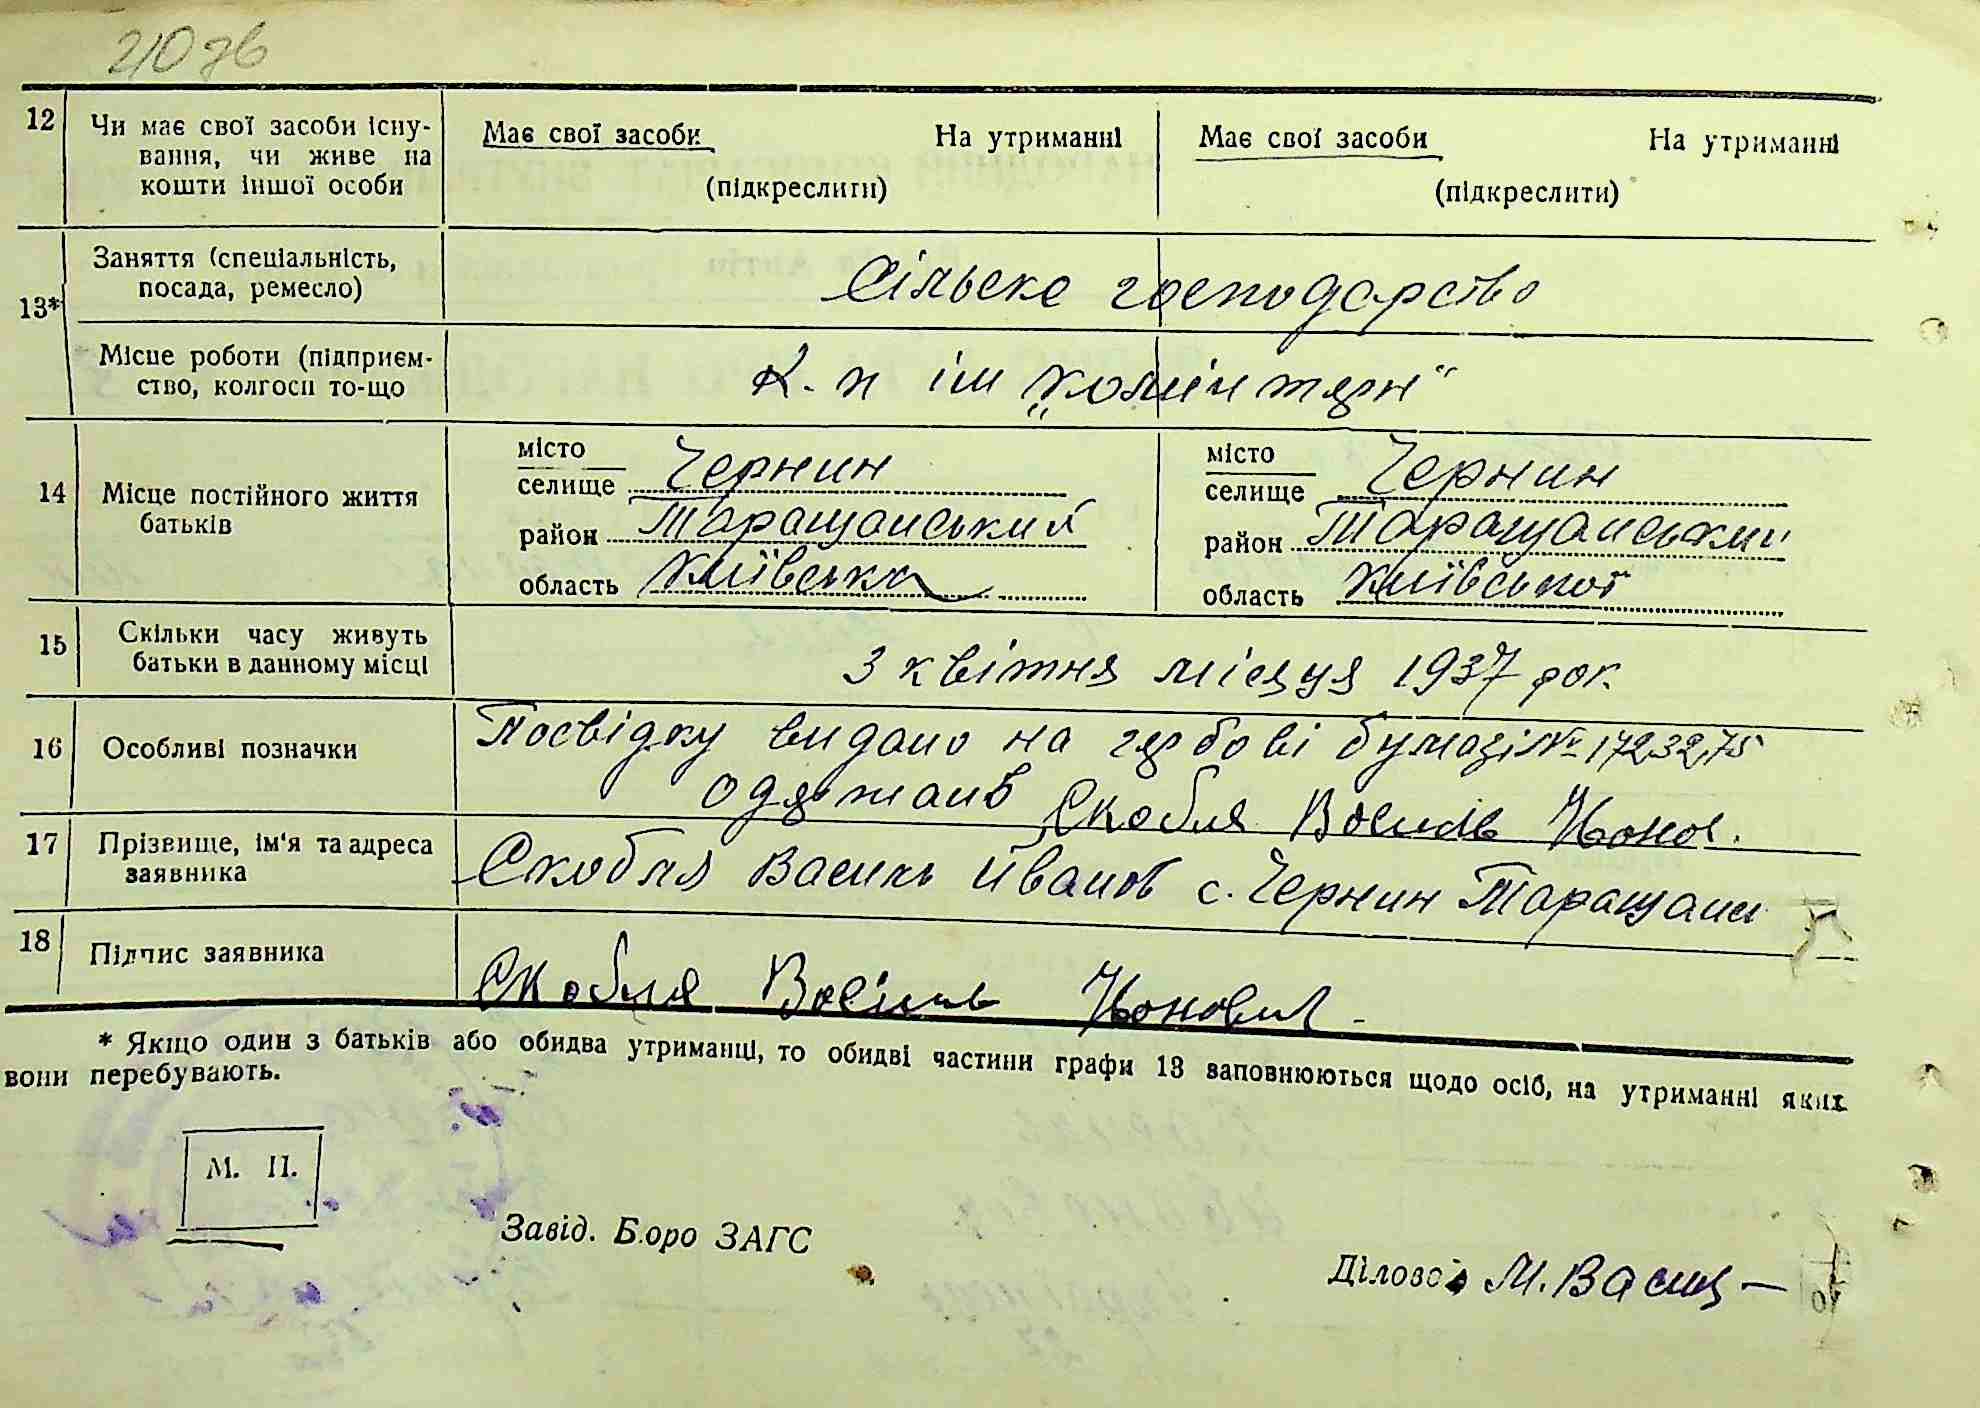 210 зв
12
Чи має свої засоби існу-
вання, чи живе на
кошти іншої особи
Має свої засоби На утриманні
(підкреслити)
Має свої засоби На утриманні
(підкреслити)
13*
Заняття (спеціальність,
посада, ремесло)
Сільске господарство
Місце роботи (підприєм-
ство, колгосп то-що
К-п ім "комінтярн"
14
Місце постійного життя
батьків
місто
селище Чернин
район Таращанський
область Київська
місто
селище Чернин
район Таращанський
область Київської
15
Скільки часу живуть
батьки в данному місці
З квітня місяця 1937 рок.
16
Особливі позначки
Посвідку видано на гярбові бумазі №
одяржав Скобля Василь
17
Прізвище, ім'я та адреса
заявника
Скобля Василь Иванов с. Чернин Таращан
18
Підпис заявника
Скобля Васіль
* Якщо один з батьків або обидва утриманці, то обидві частини графи 13 заповнюються щодо осіб, на утриманні яких
вони перебувають.
М. П.
Завід. Бюро ЗАГС
Діловод М. Васиц